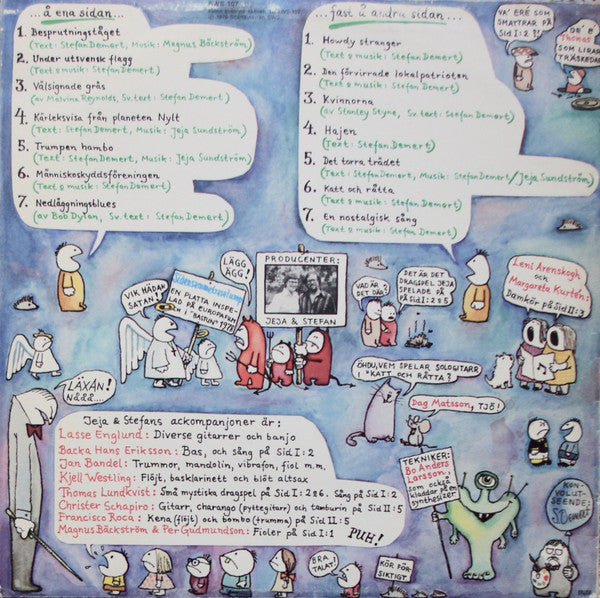 AWS-107
℗ 1978
...å ena sidan...
1. Besprutningståget
(Text: Stefan Demert, Musik: Magnus Bäckström)
2. Under utsvensk flagg
(Text & musik: Stefan Demert)
3. Välsignade gräs
(av Malvina Reynolds, Sv. text: Stefan Demert)
4. Kärleksvisa från planeten Nylt
(Text: Stefan Demert, Musik: Jeja Sundström)
5. Trumpen hambo
(Text: Stefan Demert, Musik: Jeja Sundström)
6. Människoskyddsföreningen
(Text & musik: Stefan Demert)
7. Nedläggningsblues
(av Bob Dylan, Sv. text: Stefan Demert)
...fast å andra sidan...
1. Howdy stranger
(Text & musik: Stefan Demert)
2. Den förvirrade lokalpatrioten
(Text & musik: Stefan Demert)
3. Kvinnorna
(av Stanley Styne, Sv. text: Stefan Demert)
4. Hajen
(Text & musik: Stefan Demert)
5. Det torra trädet
(Text: Stefan Demert, Musik: Stefan Demert/Jeja Sundström)
6. Katt och råtta
(Text & musik: Stefan Demert)
7. En nostalgisk sång
(Text & musik: Stefan Demert)
VA' ERE SOM
SMATTRAR PÅ
SID I:2?!
DE' E
Thomas
SOM LIRAR
TRÄSKEDAR
VIK HÄDAN
SATAN!
EN PLATTA INSPE-
LAD PÅ EUROPAFILM
I "BASTUN" 1978
LÄGG
ÄGG!
PRODUCENTER:
JEJA & STEFAN
VAD ÄR
DET DÄR?
DET ÄR DET
DRAGSPEL JEJA
SPELADE PÅ
PÅ SID I:2 & 5
Leni Arenskogh
och
Margareta Kurtén:
Damkör på Sid II:3
LÄXÅN!
NÄÄÄ....
ÖHDU, VEM SPELAR SOLOGITARR
I "KATT OCH RÅTTA?
Dag Matsson, TJÖ!
Jeja & Stefans ackompanjoner är:
Lasse Englund: Diverse gitarrer och banjo
Backa Hans Eriksson: Bas, och sång på Sid I:2
Jan Bandel: Trummor, mandolin, vibrafon, fiol m.m.
Kjell Westling: Flöjt, basklarinett och blöt altsax
Thomas Lundkvist: Små mystiska dragspel på Sid I:2 & 6. Sång på Sid I:2
Christer Schapiro: Gitarr, charango (pyttegitarr) och tamburin på Sid II:5
Francisco Roca: Kena (flöjt) och bombo (trumma) på Sid II:5
Magnus Bäckström & Per Gudmundson: Fioler på Sid I:1
PUH!
TEKNIKER:
Bo Anders
Larsson,
som också
kladdar på en
synthesizer
KON-
VOLUT-
SEENDET:
S. Demert
BRA
TALAT!
KÖR FÖR-
SIKTIGT